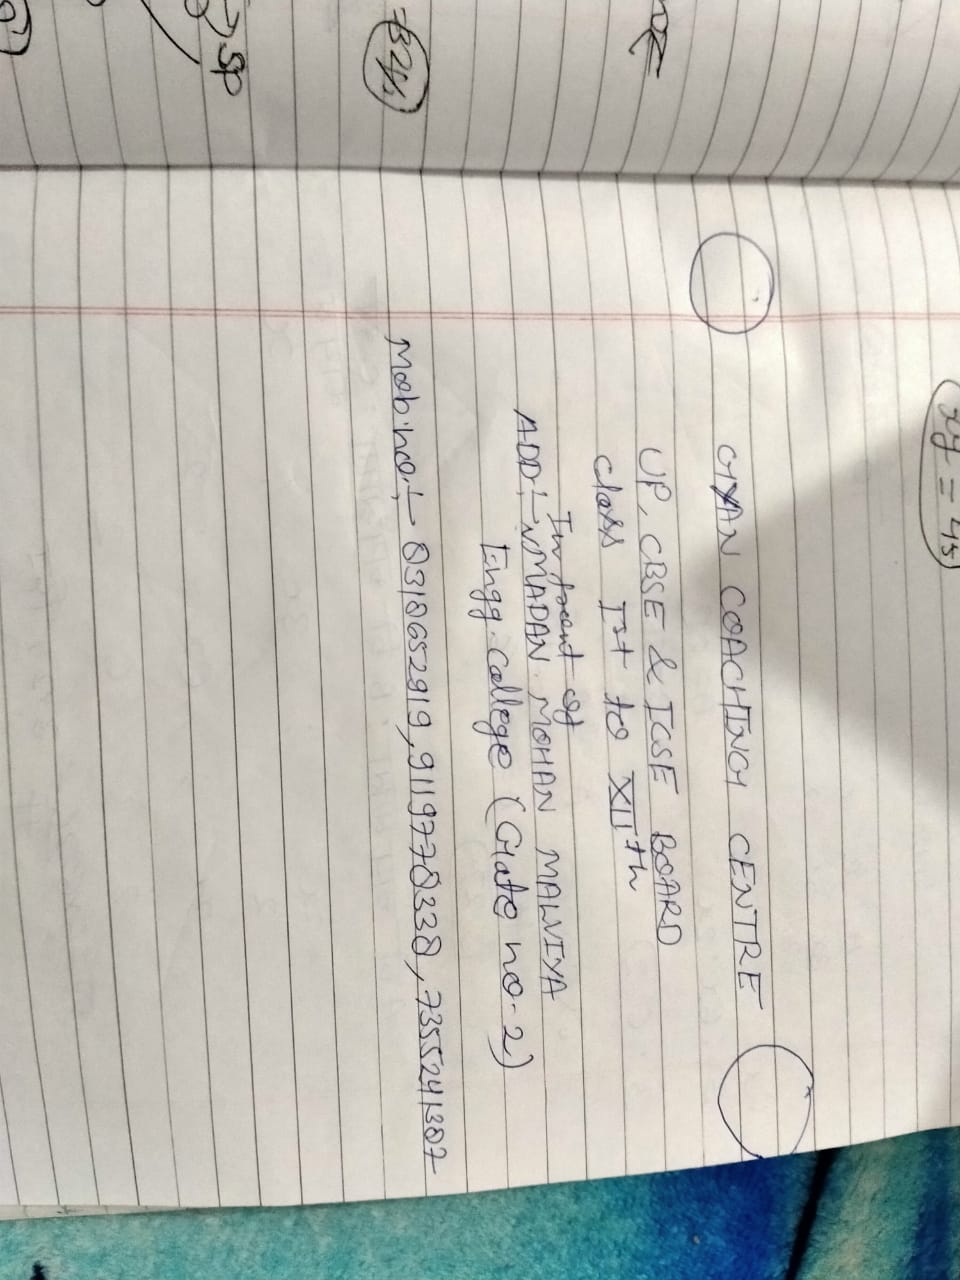 xy = 45
GYAN COACHING CENTRE
UP, CBSE & ICSE BOARD
class Ist to XIIth
In front of
ADD:- MADAN MOHAN MALVIYA
Engg. College (Gate no-2)
Mob.no.:- 8318652919, 9119778338, 7355241387
SP